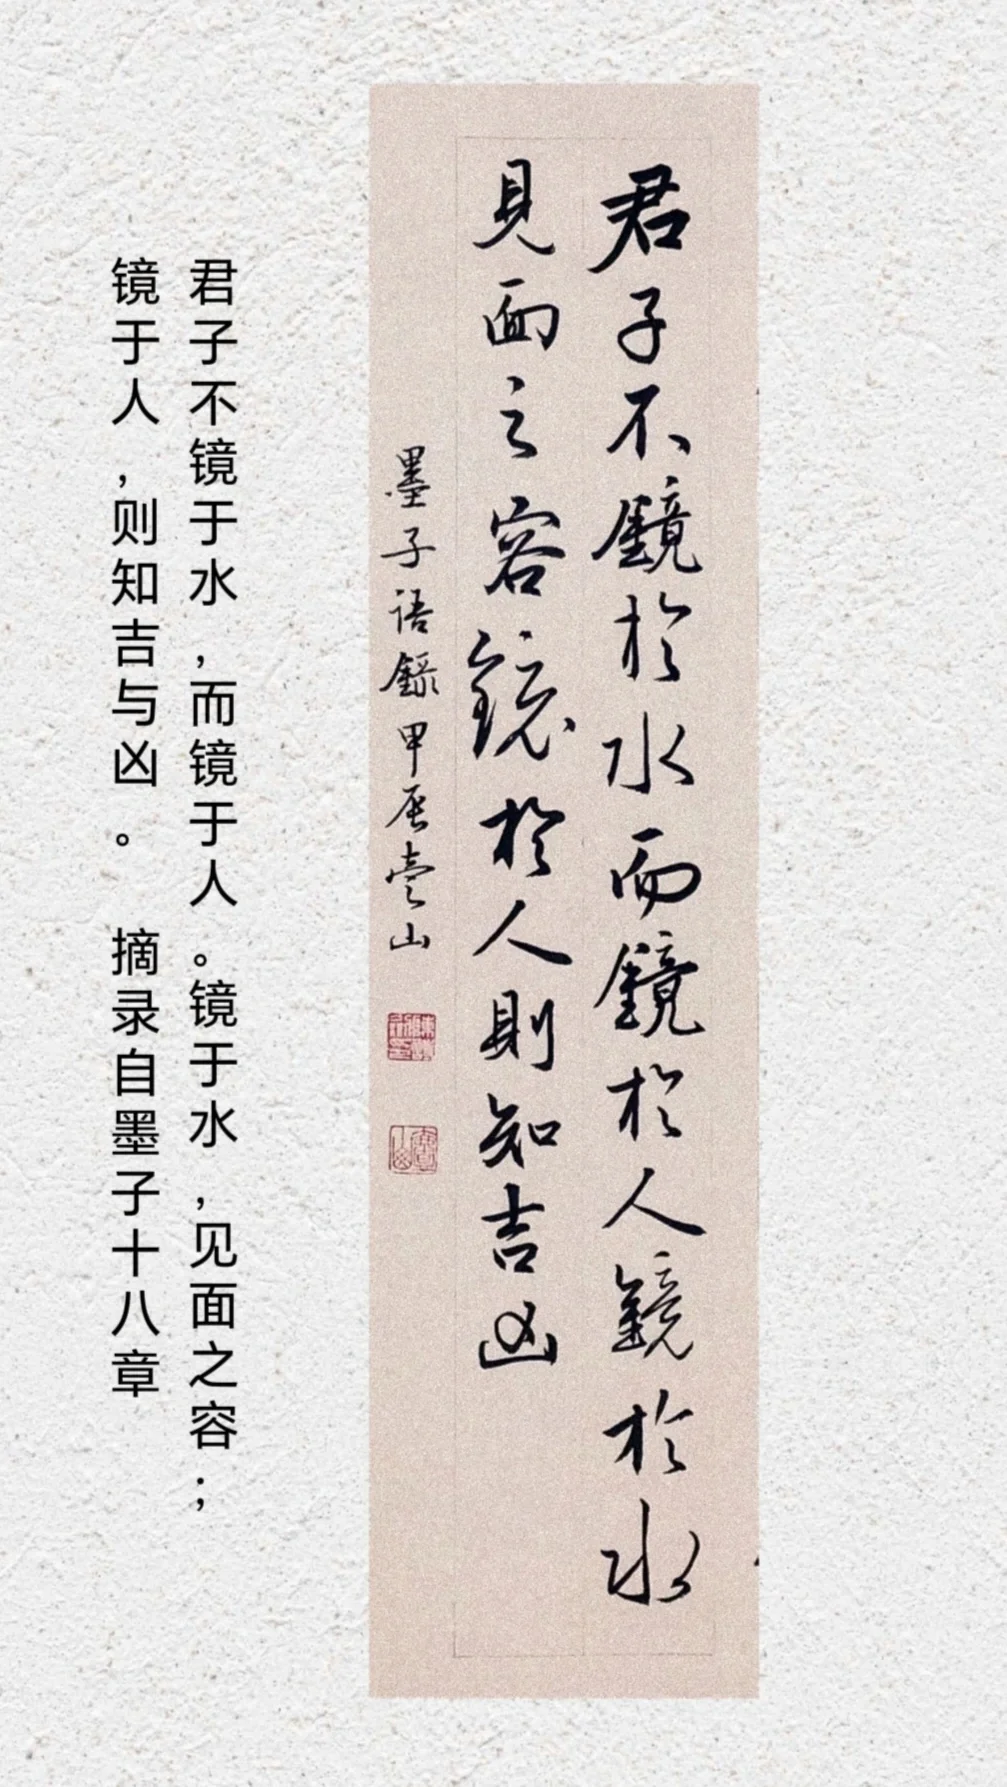 君子不鏡於水而鏡於人鏡於水
見面之容鏡於人則知吉凶
墨子语錄甲辰
君子不镜于水,而镜于人。镜于水,见面之容;
镜于人,则知吉与凶。 摘录自墨子十八章